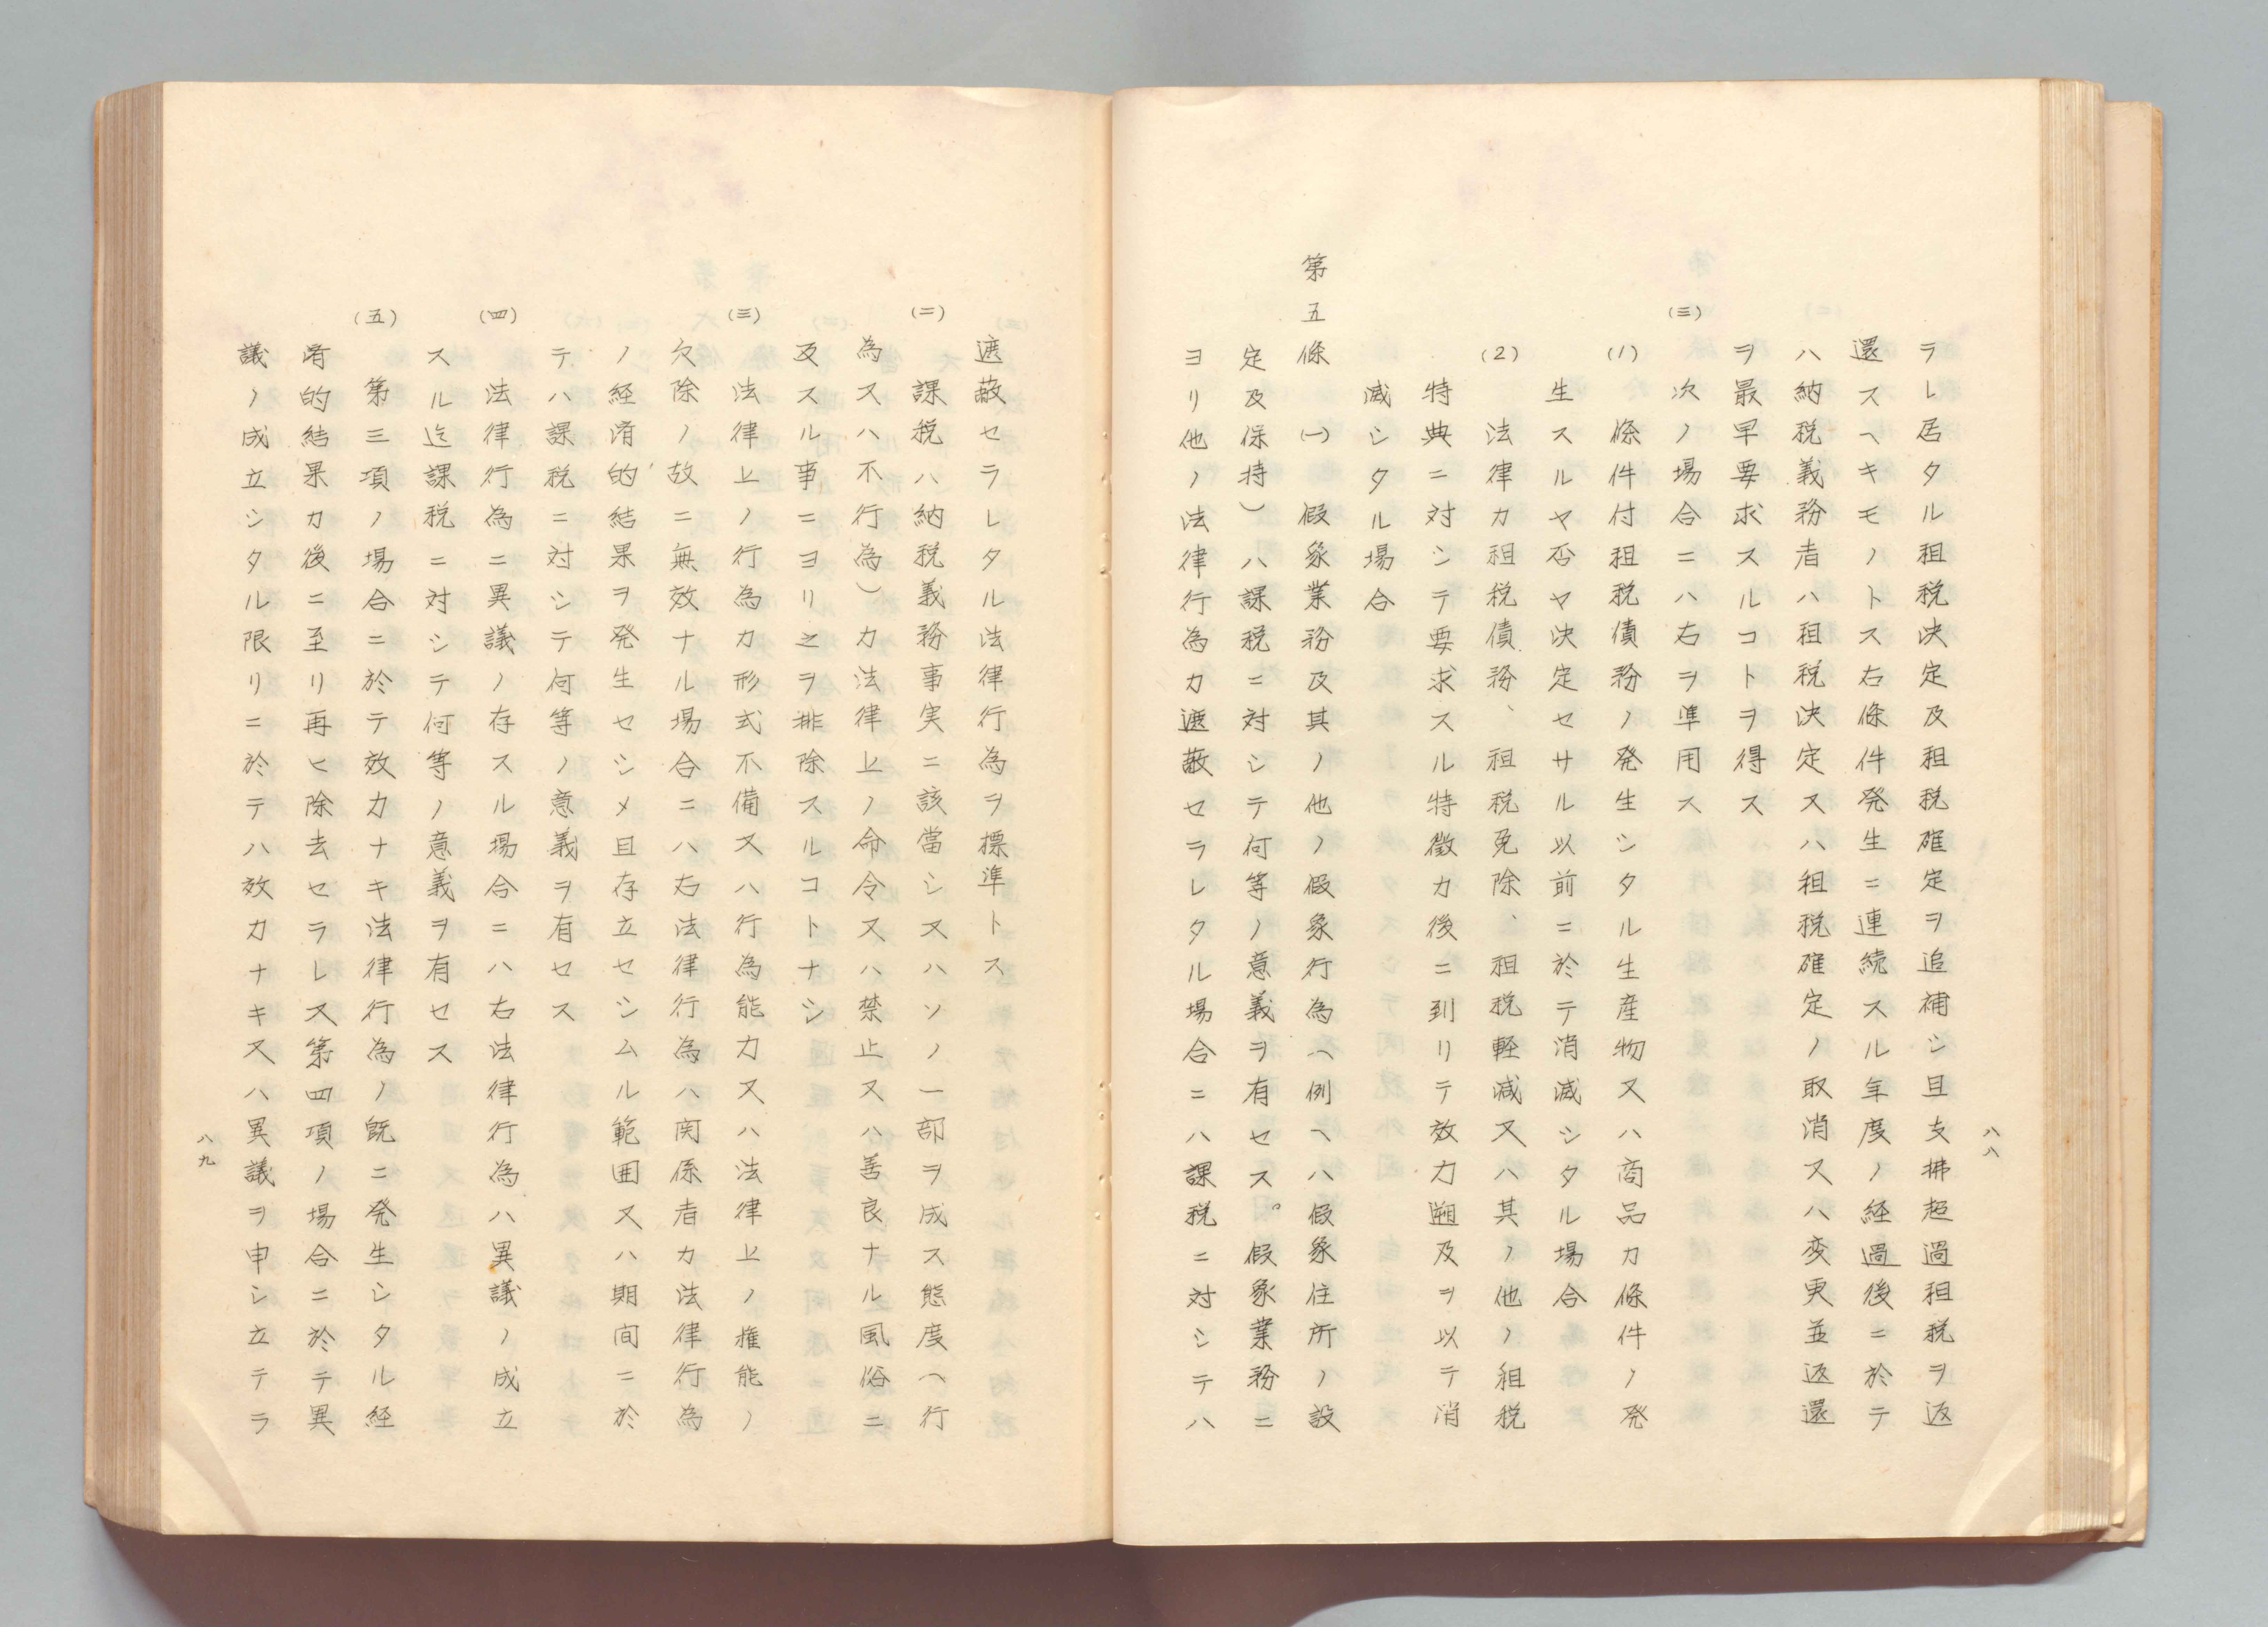 八八
ラレ居タル租税決定及租税確定ヲ追補シ且支拂超過租税ヲ返
還スヘキモノトス右條件発生ニ連続スル年度ノ経過後ニ於テ
ハ納税義務者ハ租税決定又ハ租税確定ノ取消又ハ変更並返還
ヲ最早要求スルコトヲ得ス
(三) 次ノ場合ニハ右ヲ準用ス
(1) 條件付租税債務ノ発生シタル生産物又ハ商品カ條件ノ発
生スルヤ否ヤ決定セサル以前ニ於テ消滅シタル場合
(2) 法律カ租税債務、租税免除、租税軽減又ハ其ノ他ノ租税
特典ニ対シテ要求スル特徴カ後ニ到リテ效力遡及ヲ以テ消
滅シタル場合
第五條 (一) 假象業務及其ノ他ノ假象行為(例ヘハ假象住所ノ設
定及保持)ハ課税ニ対シテ何等ノ意義ヲ有セス。假象業務ニ
ヨリ他ノ法律行為カ遮蔽セラレタル場合ニハ課税ニ対シテハ
遮蔽セラレタル法律行為ヲ標準トス
(二) 課税ハ納税義務事実ニ該當シ又ハソノ一部ヲ成ス態度(行
為又ハ不行為)カ法律上ノ命令又ハ禁止又ハ善良ナル風俗ニ
及スル事ニヨリ之ヲ排除スルコトナシ
(三) 法律上ノ行為カ形式不備又ハ行為能力又ハ法律上ノ権能ノ
欠除ノ故ニ無效ナル場合ニハ右法律行為ハ関係者カ法律行為
ノ経済的結果ヲ発生セシメ且存立セシムル範囲又ハ期间ニ於
テハ課税ニ対シテ何等ノ意義ヲ有セス
(四) 法律行為ニ異議ノ存スル場合ニハ右法律行為ハ異議ノ成立
スル迄課税ニ対シテ何等ノ意義ヲ有セス
(五) 第三項ノ場合ニ於テ效力ナキ法律行為ノ既ニ発生シタル経
済的結果カ後ニ至リ再ヒ除去セラレ又第四項ノ場合ニ於テ異
議ノ成立シタル限リニ於テハ效力ナキ又ハ異議ヲ申シ立テラ
八九